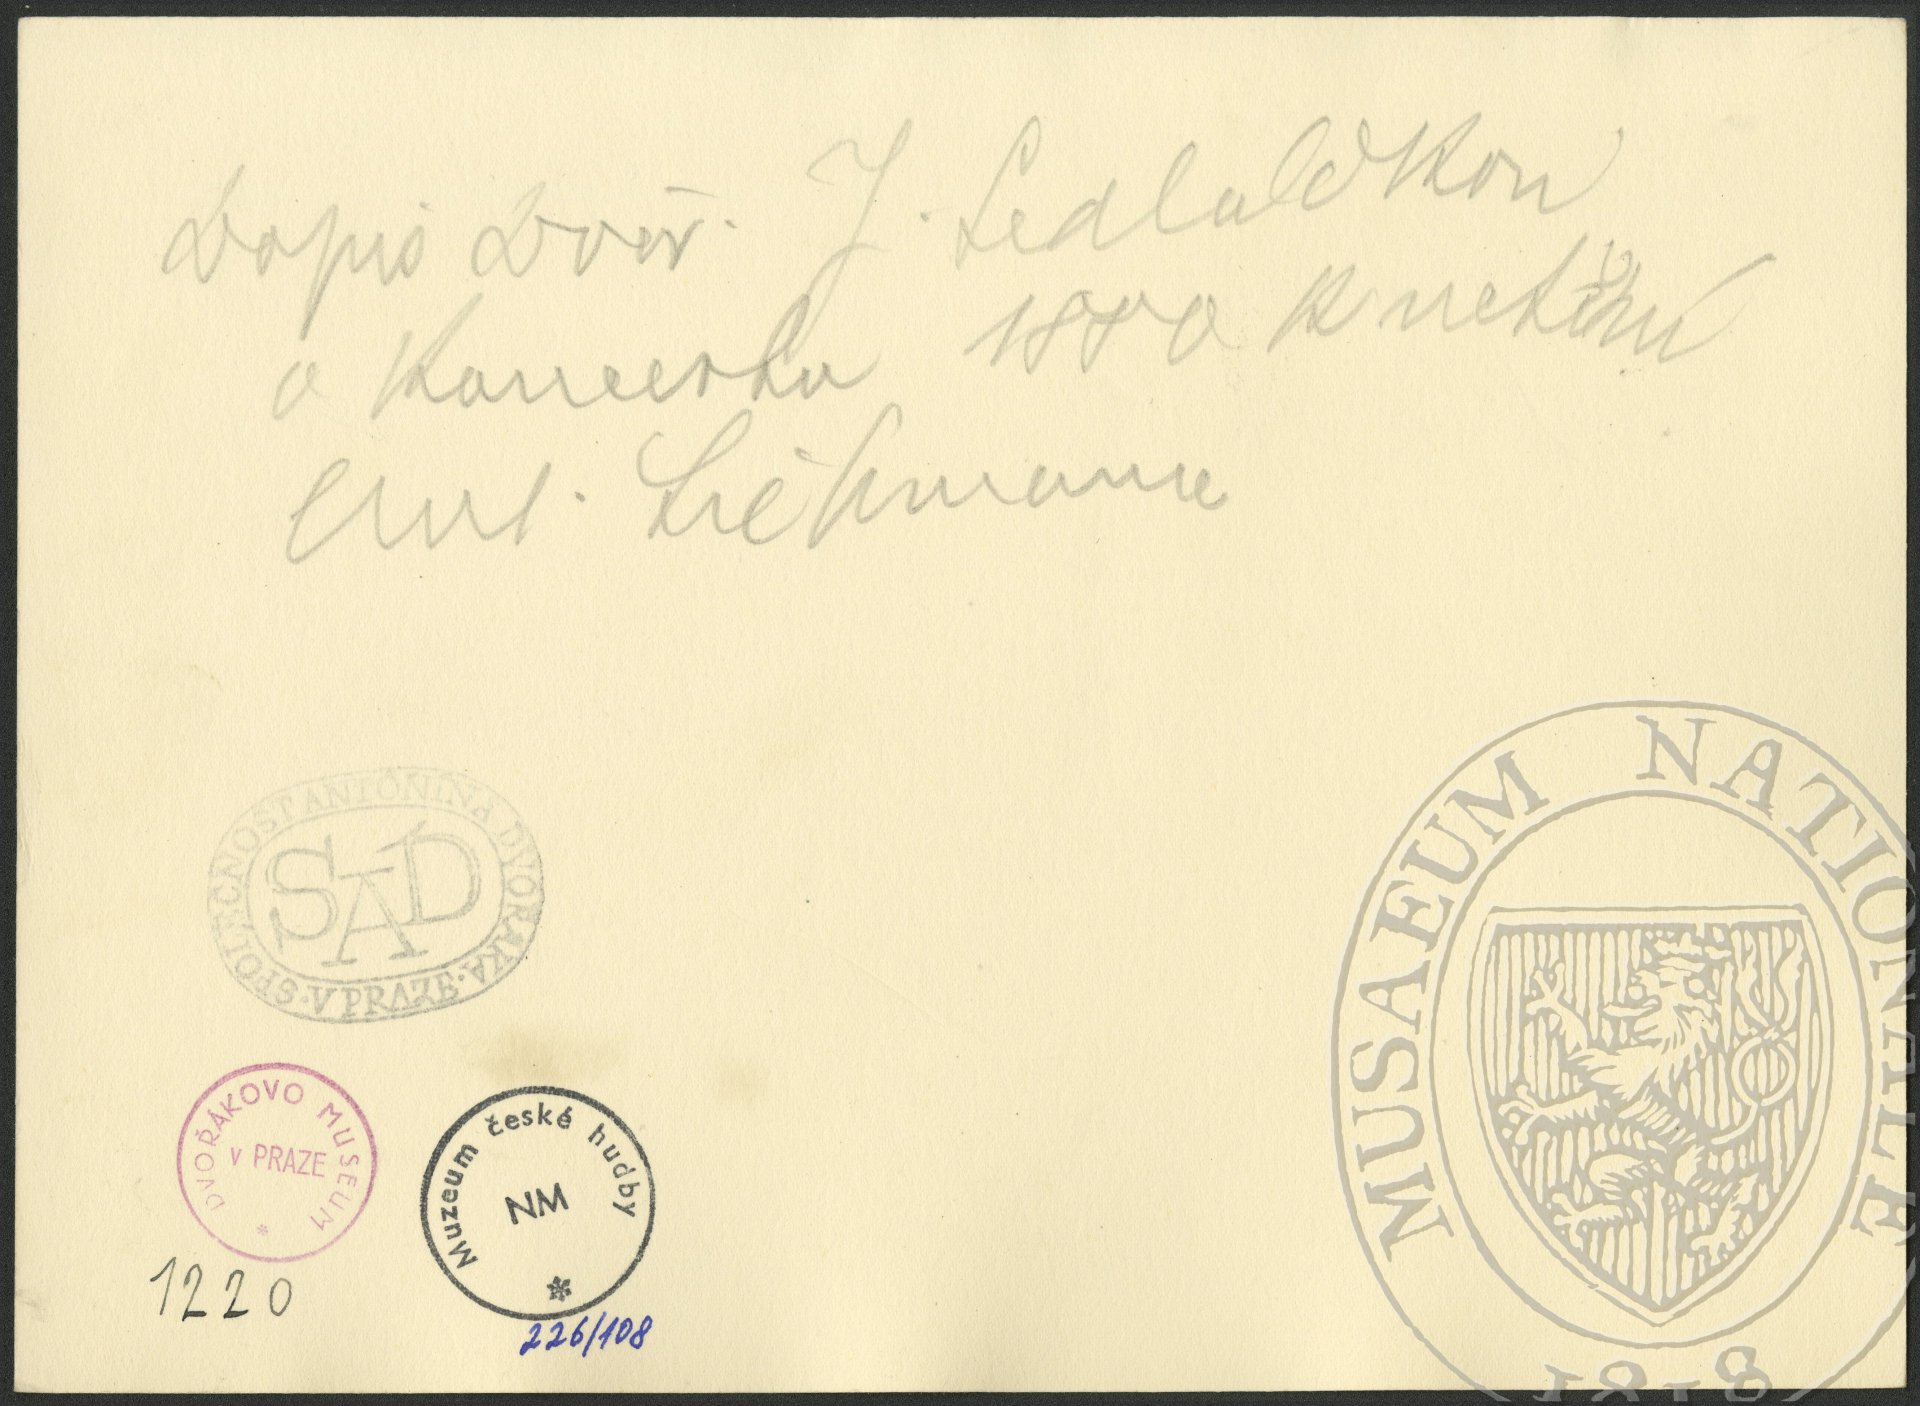 Dopis Dvoř. J. Sedláčkovi
o koncertu 1880 k uctění
Ant. Liehmanna
SPOLEČNOST ANTONÍNA DVOŘÁKA · V PRAZE ·
SAD
DVOŘÁKOVO MUSEUM
v PRAZE
*
1220
Muzeum české hudby
NM
*
226/108
MUSAEUM NATIONALE
1818